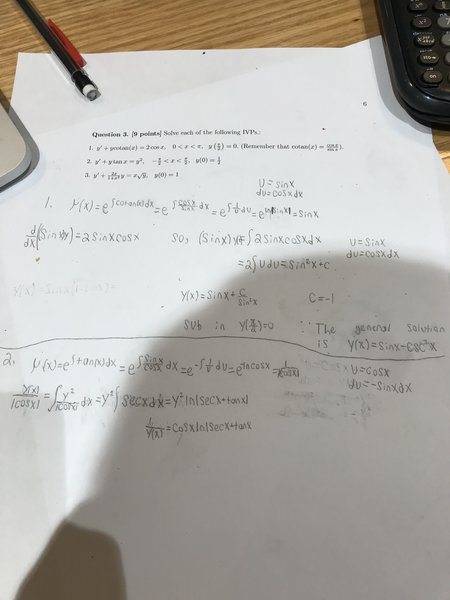 6
Question 3. [9 points] Solve each of the following IVPs.:
1. y′ + ycotan(x) = 2 cos x, 0 < x < π, y(π/2) = 0. (Remember that cotan(x) = cos x/sin x).
2. y′ + y tan x = y², −π/2 < x < π/2, y(0) = 1/2
y(0) = 1
U = sinx
du = cosxdx
1. μ(x) = e^∫cotan(x)dx = e^∫cosx/sinx dx = e^∫1/U dU = e^ln|sinx| = sinx
d/dx = 2sinxcosx so, = ∫2sinxcosxdx U = sinx
du = cosxdx
= 2∫UdU = sin²x + c
y(x) = sinx + C = -1
sub in y(π/2) = 0 ∴ The general solution
is y(x) = sinx - csc²x
2. μ(x) = e^∫tan(x)dx = e^∫sinx/cosx dx = e^-∫1/U dU U = cosx
du = -sinxdx
y(x)/|cosx| = ∫ y²/|cosx| dx = y²∫secxdx = y² ln|secx+tanx|
1/y(x) = cosxln|secx+tanx